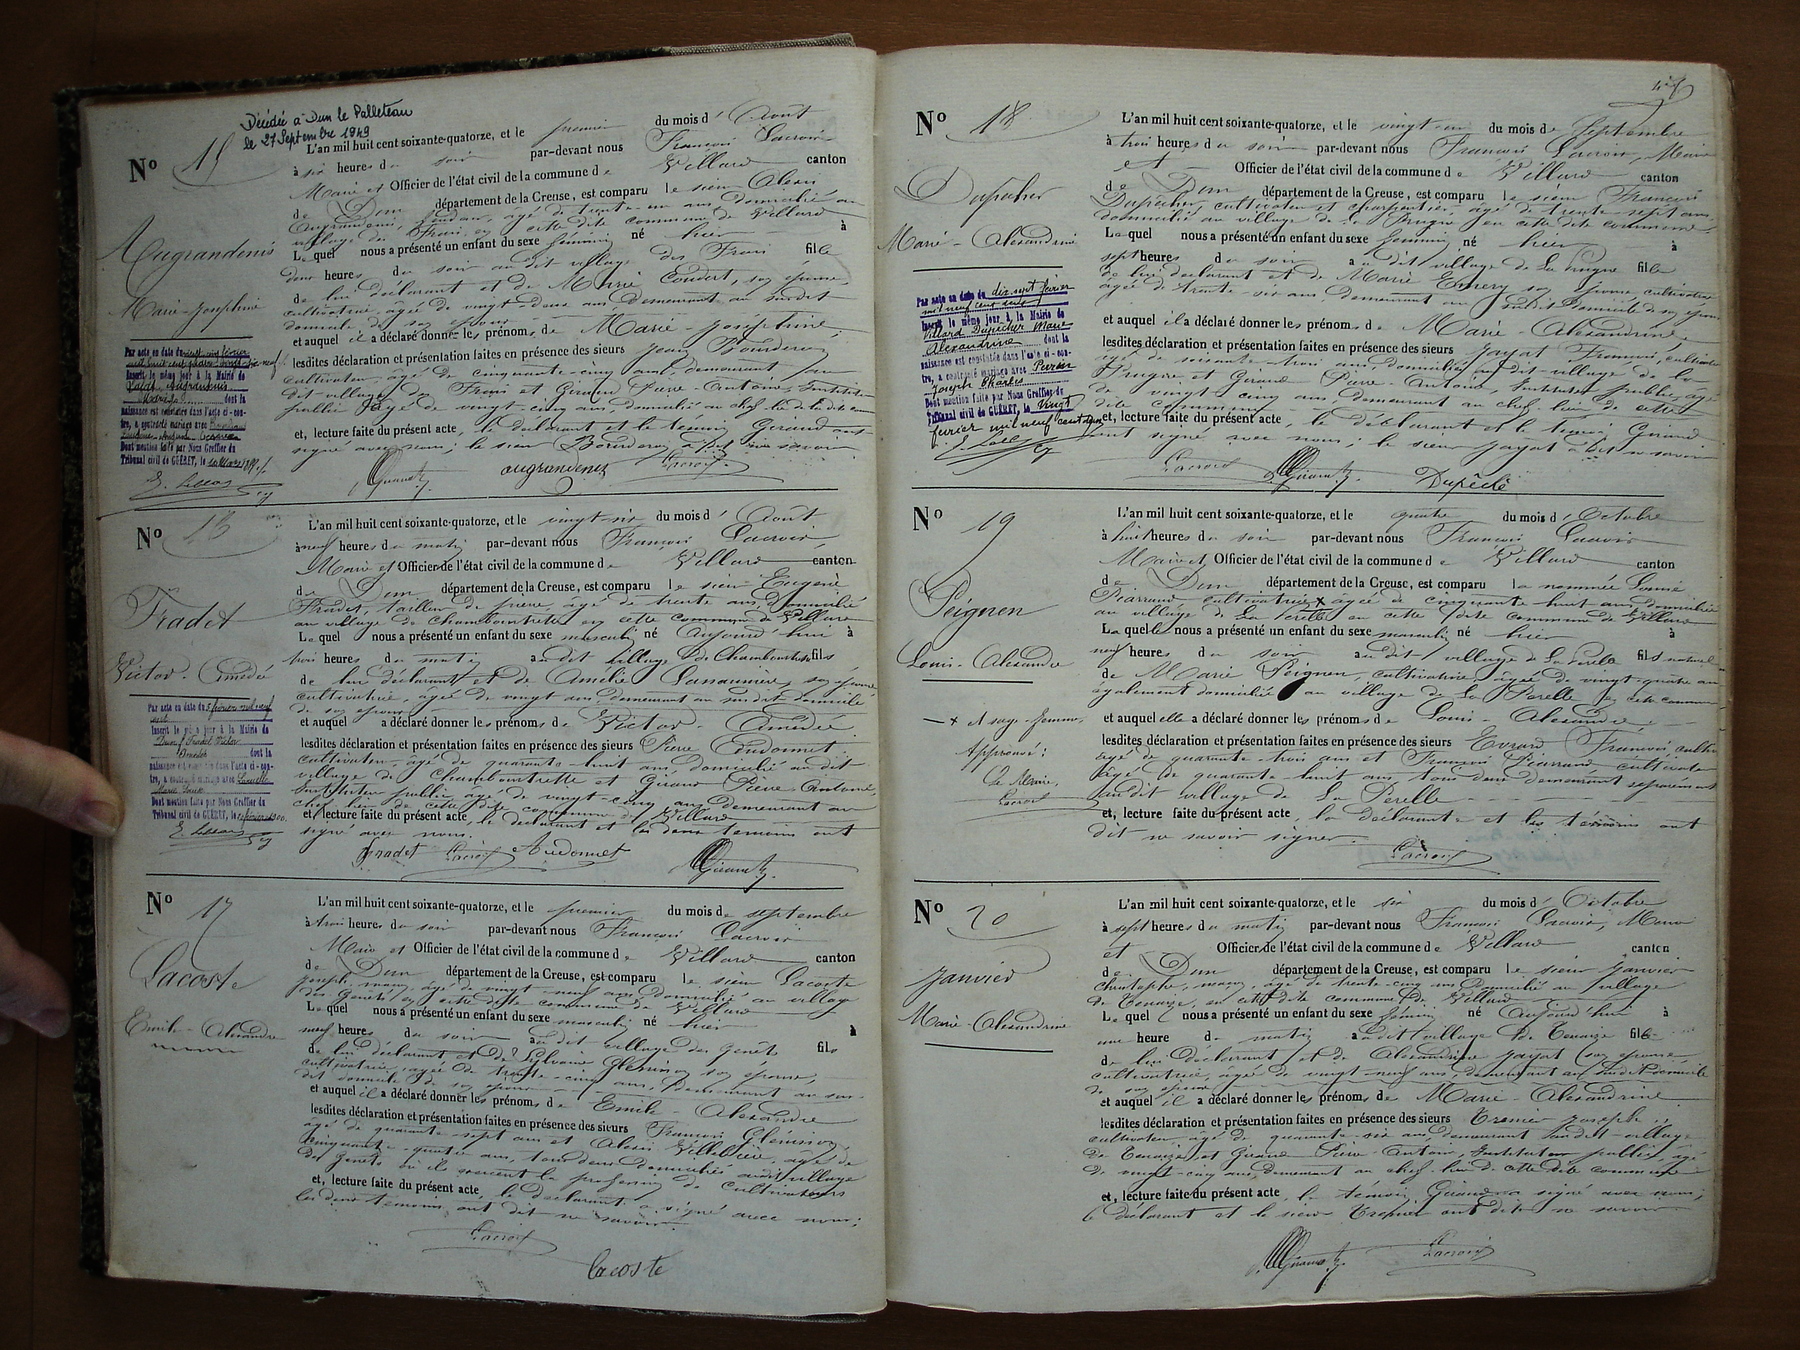 Décédée à Dun le Palleteau
le 27 Septembre 1949
No 15
Augrandenis
Marie-Joséphine
Par acte en date du
Inscrit le même jour à la Mairie de
dont la
naissance est constatée dans l'acte ci-con-
tre, a contracté mariage avec
Dont mention faite par Nous Greffier du
Tribunal civil de GUÉRET, le
L'an mil huit cent soixante-quatorze, et le premier du mois d'Août
à six heures du soir par-devant nous François Lacroix
Maire et Officier de l'état civil de la commune de Villard canton
de Dun département de la Creuse, est comparu le sieur Alexis
Augrandenis, âgé de trente-un ans domicilié au
village des Frais, en cette dite commune de Villard
Lequel nous a présenté un enfant du sexe féminin né hier à
deux heures du soir au dit village des Frais fille
de lui déclarant et de Marie Coudert, son épouse,
cultivatrice, âgée de vingt-deux ans demeurant au susdit
domicile de son époux
et auquel il a déclaré donner les prénoms de Marie-Joséphine,
lesdites déclaration et présentation faites en présence des sieurs Jean
cultivateur, âgé de cinquante-cinq ans demeurant au
dit village des Frais et Giraud Pierre-Antoine, Instituteur
public, âgé de vingt-cinq ans, domicilié au chef-lieu de la dite commune
et, lecture faite du présent acte, le déclarant et le témoin Giraud ont
signé avec nous; le sieur a dit ne savoir
Giraud augrandenis Lacroix
No 16
Tradet
Victor-Amédé
Par acte en date du 5 février mil neuf
cent
Inscrit le même jour à la Mairie de
Dun, Tradet Victor
Amédé dont la
naissance est constatée dans l'acte ci-con-
tre, a contracté mariage avec
Marie Louise
Dont mention faite par Nous Greffier du
Tribunal civil de GUÉRET, le
L'an mil huit cent soixante-quatorze, et le vingt-six du mois d'Août
à neuf heures du matin par-devant nous François Lacroix,
Maire et Officier de l'état civil de la commune de Villard canton
de Dun département de la Creuse, est comparu le sieur Eugène
Tradet, tailleur de pierre, âgé de trente ans, domicilié
au village de Chambontrette en cette commune de Villard
Lequel nous a présenté un enfant du sexe masculin né aujourd'hui à
trois heures du matin au dit village de Chambontrette fils
de lui déclarant et de Amélie son épouse,
cultivatrice, âgée de vingt ans, demeurant au susdit domicile
de son époux
et auquel a déclaré donner les prénoms de Victor Amédée
lesdites déclaration et présentation faites en présence des sieurs Pierre Audonnet
cultivateur, âgé de quarante-huit ans, domicilié au dit
village de Chambontrette et Giraud Pierre Antoine,
Instituteur public âgé de vingt-cinq ans demeurant au
chef-lieu de cette dite commune de Villard
et, lecture faite du présent acte, le déclarant et les deux témoins ont
signé avec nous.
Tradet Lacroix Audonnet Giraud
No 17
Lacoste
Emile-Alexandre
L'an mil huit cent soixante-quatorze, et le premier du mois de septembre
à trois heures du soir par-devant nous François Lacroix
Maire et Officier de l'état civil de la commune de Villard canton
de Dun département de la Creuse, est comparu le sieur Lacoste
Joseph, maçon, âgé de vingt-neuf ans domicilié au village
des Genêts en cette dite commune de Villard
Lequel nous a présenté un enfant du sexe masculin né hier à
neuf heures du soir au dit village des Genêts fils
de lui déclarant et de Sylvaine Glémmon son épouse,
cultivatrice, âgée de trente-cinq ans, demeurant au sus-
dit domicile de son époux
et auquel il a déclaré donner les prénoms de Emile-Alexandre
lesdites déclaration et présentation faites en présence des sieurs François Glémmon
âgé de quarante-sept ans et Alexis âgé de
cinquante-quatre ans, tous deux domiciliés audit village
des Genêts où ils exercent la profession de cultivateurs
et, lecture faite du présent acte, le déclarant a signé avec nous;
les deux témoins ont dit ne savoir
Lacroix
Lacoste
No 18
Dupêcher
Marie-Alexandrine
Par acte en date du dix sept février
mil neuf cent
Inscrit le même jour à la Mairie de
Villard Dupêcher Marie
Alexandrine dont la
naissance est constatée dans l'acte ci-con-
tre, a contracté mariage avec Perrin
Joseph Charles
Dont mention faite par Nous Greffier du
Tribunal civil de GUÉRET, le vingt
février mil neuf cent
L'an mil huit cent soixante-quatorze, et le vingt-un du mois de Septembre
à trois heures du soir par-devant nous François Lacroix, Maire
et Officier de l'état civil de la commune de Villard canton
de Dun département de la Creuse, est comparu le sieur François
Dupêcher, cultivateur et charpentier, âgé de trente-sept ans,
domicilié au village de la Prugne en cette dite commune.
Lequel nous a présenté un enfant du sexe féminin né hier à
sept heures du soir au dit village de La Prugne fille
de lui déclarant et de Marie Emery son épouse, cultivatrice
âgée de trente-six ans, demeurant au susdit domicile de son époux
et auquel il a déclaré donner les prénoms de Marie-Alexandrine
lesdites déclaration et présentation faites en présence des sieurs Jayat François, cultivateur
âgé de soixante-trois ans, domicilié au dit village de la
Prugne et Giraud Pierre Antoine, Instituteur public, âgé
de vingt-cinq ans, demeurant au chef-lieu de cette
dite commune
et, lecture faite du présent acte, le déclarant et le témoin Giraud
ont signé avec nous; le sieur Jayat a dit ne savoir
Lacroix Giraud Dupêché
No 19
Peignen
Louis-Alexandre
+ et sage-femme.
Approuvé:
Le Maire,
Lacroix
L'an mil huit cent soixante-quatorze, et le quatre du mois d'Octobre
à huit heures du soir par-devant nous François Lacroix
Maire et Officier de l'état civil de la commune de Villard canton
de Dun département de la Creuse, est comparu la nommée Louise
Piarraud cultivatrice + âgée de cinquante-huit ans domiciliée
au village de La Perelle en cette dite commune de Villard
Laquelle nous a présenté un enfant du sexe masculin né hier à
neuf heures du soir au dit village de La Perelle fils naturel
de Marie Peignen, cultivatrice, âgée de vingt-quatre ans
également domiciliée au village de La Perelle en cette commune
et auquel elle a déclaré donner les prénoms de Louis-Alexandre
lesdites déclaration et présentation faites en présence des sieurs Evrard François, cultivateur
âgé de quarante-trois ans et François Piarraud cultivateur
âgé de quarante-huit ans tous deux demeurant séparément
audit village de La Perelle
et, lecture faite du présent acte, la déclarante et les témoins ont
dit ne savoir signer.
Lacroix
No 20
Janvier
Marie-Alexandrine
L'an mil huit cent soixante-quatorze, et le six du mois d'Octobre
à sept heures du matin par-devant nous François Lacroix, Maire
et Officier de l'état civil de la commune de Villard canton
de Dun département de la Creuse, est comparu le sieur Janvier
Christophe, maçon, âgé de trente-cinq ans domicilié au village
de en cette dite commune de Villard
Lequel nous a présenté un enfant du sexe féminin né aujourd'hui à
une heure du matin au dit village de fille
de lui déclarant et de Alexandrine Jayat son épouse,
cultivatrice, âgée de vingt-neuf ans demeurant au susdit domicile
de son époux
et auquel il a déclaré donner les prénoms de Marie-Alexandrine
lesdites déclaration et présentation faites en présence des sieurs Joseph
cultivateur, âgé de quarante-six ans demeurant au dit village
de et Giraud Pierre-Antoine, Instituteur public, âgé
de vingt-cinq ans, demeurant au chef-lieu de cette dite commune
et, lecture faite du présent acte, le témoin Giraud a signé avec nous;
le déclarant et le sieur ont dit ne savoir
Giraud Lacroix